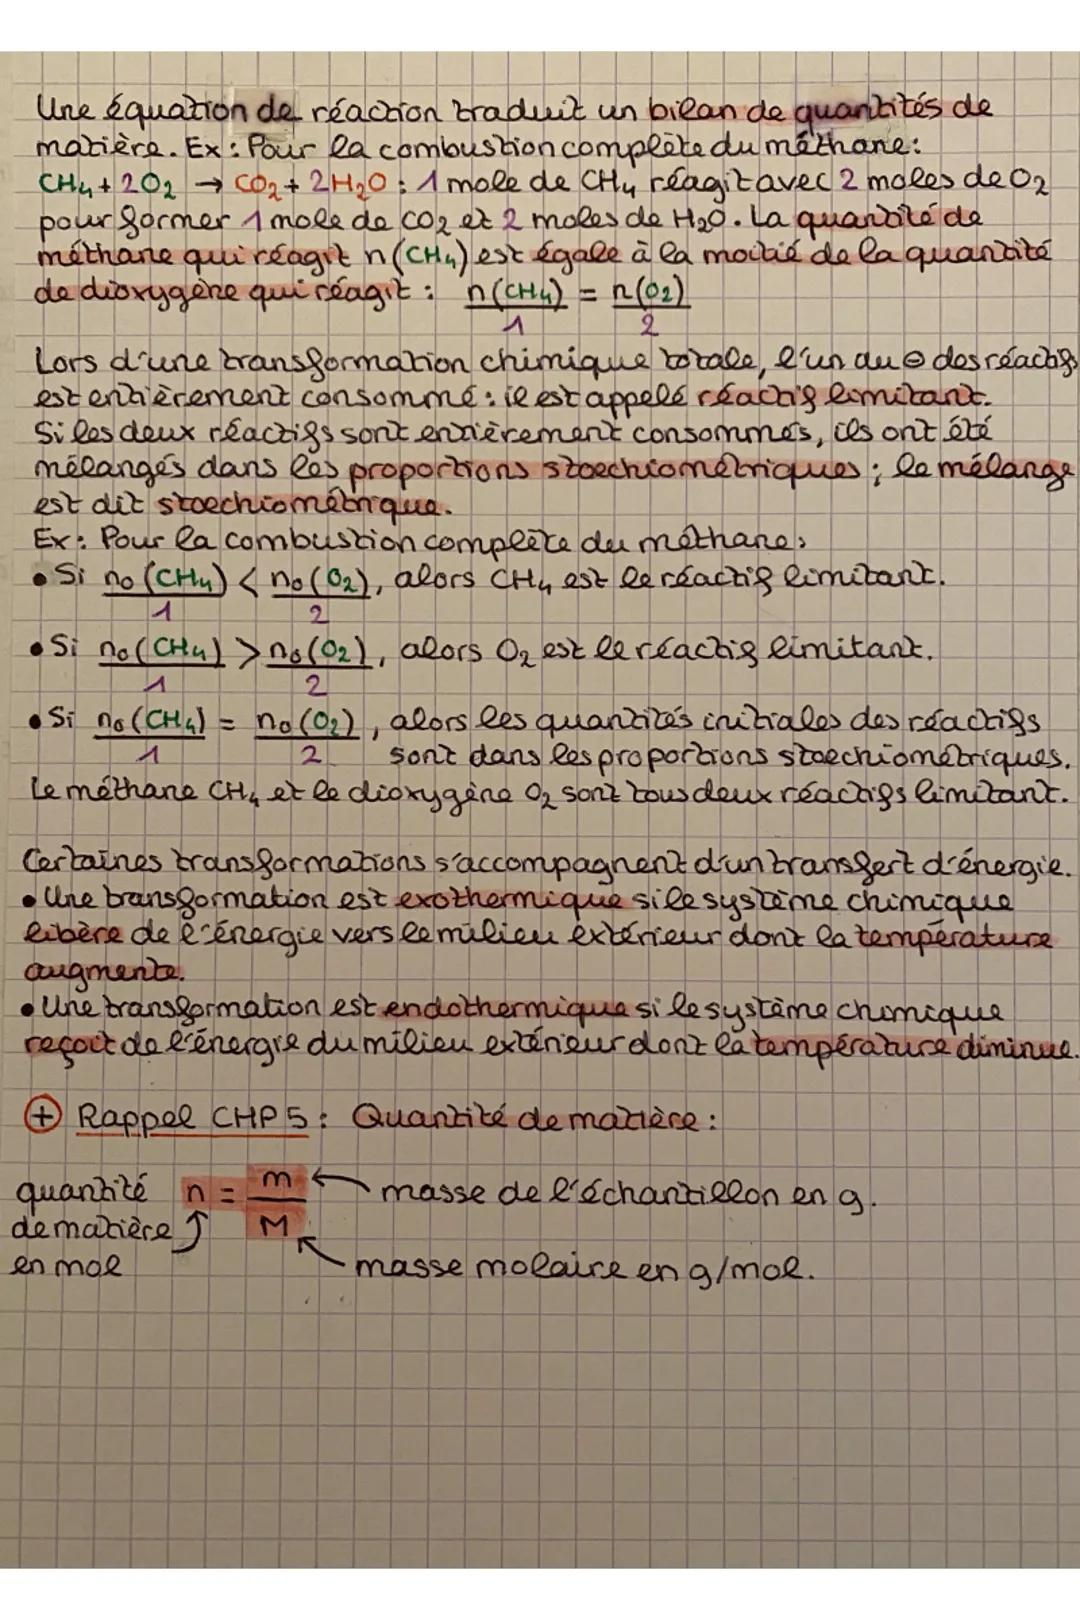 Une équation de réaction traduit un bilan de quantités de
matière. Ex : Pour la combustion complète du méthane :
CH₄ + 2O₂ → CO₂ + 2H₂O : 1 mole de CH₄ réagit avec 2 moles de O₂
pour former 1 mole de CO₂ et 2 moles de H₂O. La quantité de
méthane qui réagit n(CH₄) est égale à la moitié de la quantité
de dioxygène qui réagit : n(CH₄) = n(O₂)
1 2
Lors d'une transformation chimique totale, l'un au ⊖ des réactifs
est entièrement consommé : il est appelé réactif limitant.
Si les deux réactifs sont entièrement consommés, ils ont été
mélangés dans les proportions stoechiométriques ; le mélange
est dit stoechiométrique.
Ex : Pour la combustion complète du méthane :
• Si n₀(CH₄) < n₀(O₂), alors CH₄ est le réactif limitant.
1 2
• Si n₀(CH₄) > n₀(O₂), alors O₂ est le réactif limitant.
1 2
• Si n₀(CH₄) = n₀(O₂), alors les quantités initiales des réactifs
1 2 sont dans les proportions stoechiométriques.
Le méthane CH₄ et le dioxygène O₂ sont tous deux réactifs limitant.
Certaines transformations s'accompagnent d'un transfert d'énergie.
• Une transformation est exothermique si le système chimique
libère de l'énergie vers le milieu extérieur dont la température
augmente.
• Une transformation est endothermique si le système chimique
reçoit de l'énergie du milieu extérieur dont la température diminue.
⊕ Rappel CHP 5 : Quantité de matière :
quantité n = m ← masse de l'échantillon en g.
de matière ↑ M
en mol masse molaire en g/mol.